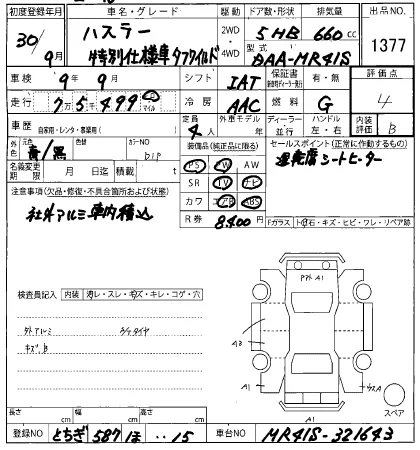 初度登録年月 車名・グレード 駆動 ドア数・形状 排気量 出品NO
30年 9月 ハスラー 2WD 4WD 5HB 660cc 1377
特別仕様車 タフワイルド 型式 DAA-MR41S
車検 9年 9月 シフト IAT 保証書 有・無 評価点
走行 冷房 AAC 燃料 G 4
車歴 自家用・レンタ・事業用( ) 定員 4人 外車モデル 年 ディーラー 並行 ハンドル 左・右 内装評価 B
外色 元色 黄/黒 色替 カラーNO D1P 装備品(純正品に限る) セールスポイント(正常に動作するもの)
名義変更期限 月 日迄 積載 t PS PW AW 運転席シートヒーター
注意事項(欠品・修復・不具合箇所および状態) SR TV ナビ
社外アルミ車内積込 カワ エアB ABS
R券 8400 Fガラス ト石・キズ・ヒビ・ワレ・リペア跡
検査員記入 内装 ヨゴレ・スレ・キズ・キレ・コゲ・穴
外アルミ
キズ、B
A1
A2
A1
A1
スペア
長さ cm 幅 cm 高さ cm
登録NO とちぎ 587 ほ ・・15 車台NO MR41S-321643